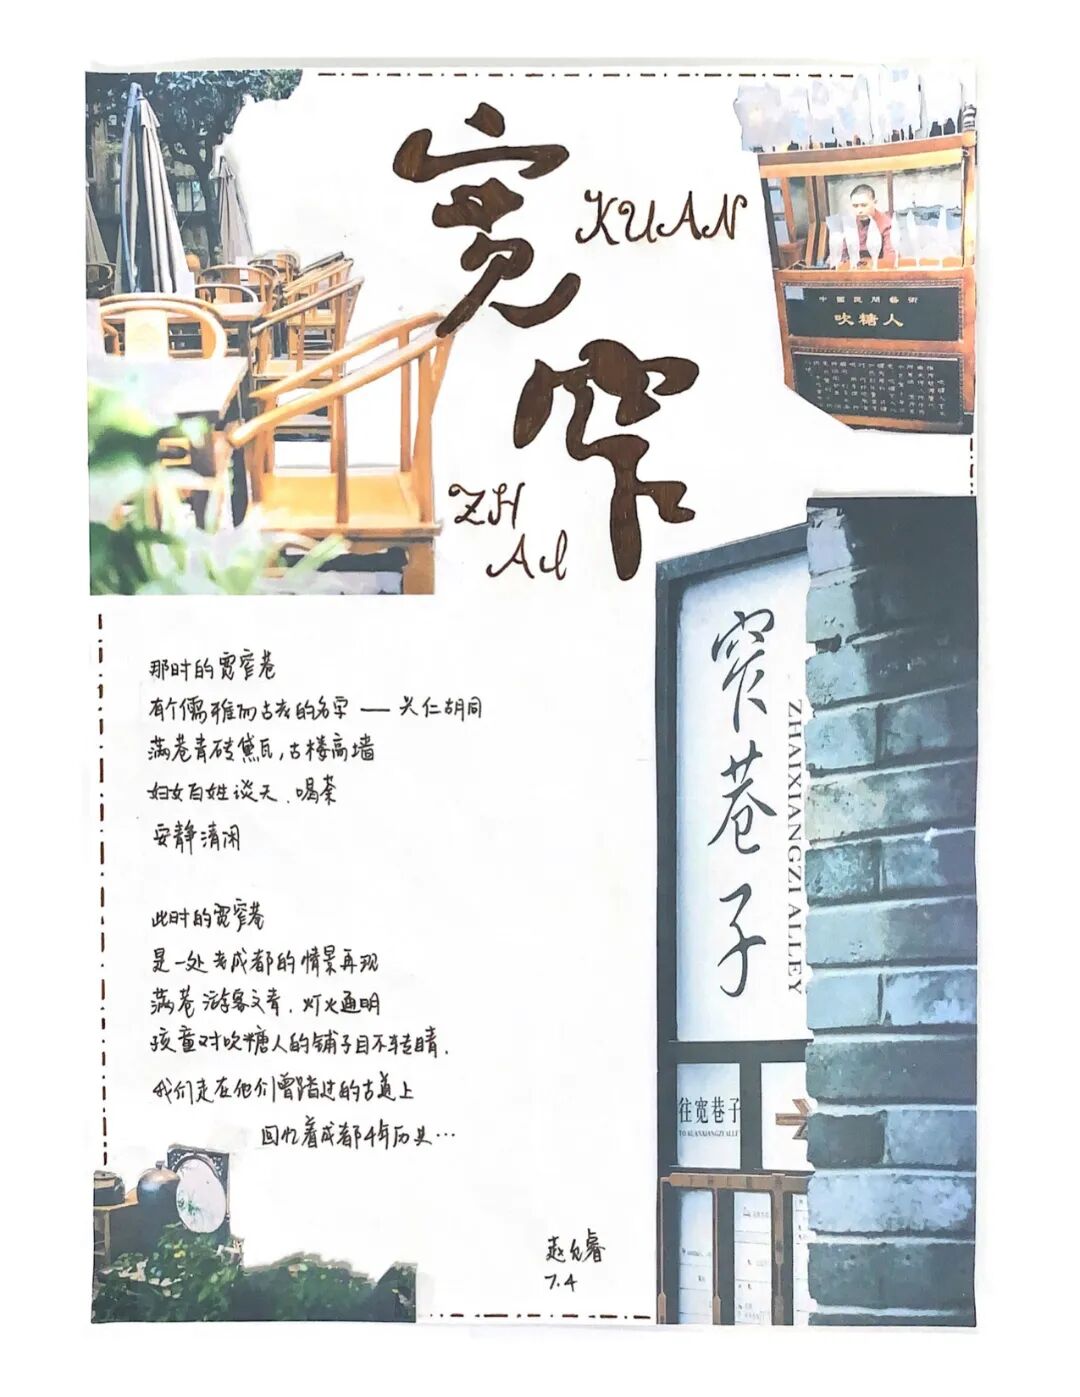 宽
KUAN
窄
ZH
AI
中國民間藝術
吹糖人
窄巷子
ZHAIXIANGZI ALLEY
那时的宽窄巷
有个儒雅而古老的名字 — 兴仁胡同
满巷青砖黛瓦，古楼高墙
妇女百姓谈天、喝茶
安静清闲
此时的宽窄巷
是一处老成都的情景再现
满巷游客文青，灯火通明
孩童对吹糖人的铺子目不转睛，
我们走在他们曾踏过的古道上
回忆着成都千年历史…
往宽巷子
TO KUANXIANGZI ALLEY
赵允睿
7.4